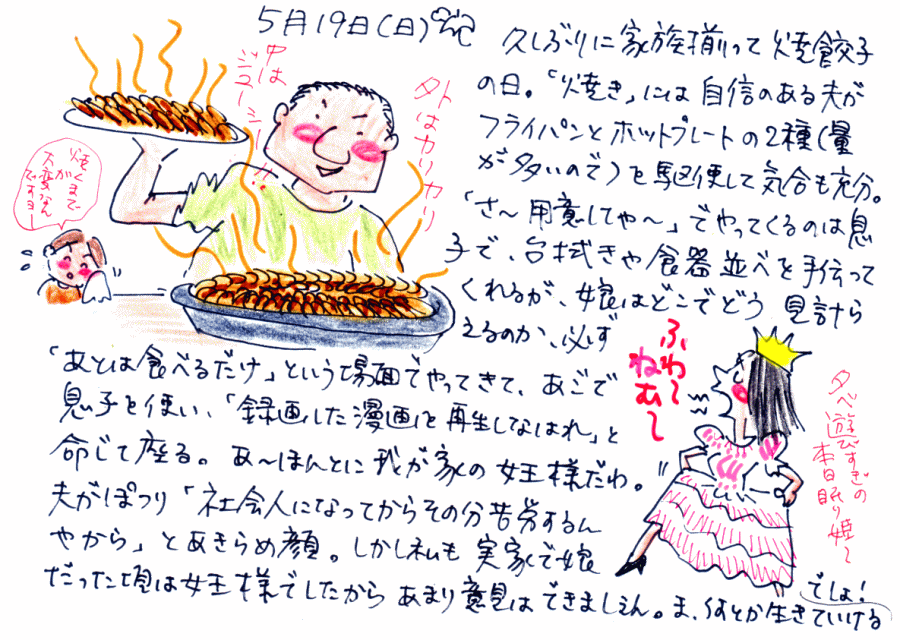 5月19日(日)
久しぶりに家族揃って焼餃子
の日。「焼き」には自信のある夫が
フライパンとホットプレートの2種(量
が多いので)を駆使して気合も充分。
「さ〜用意してや〜」でやってくるのは息
子で、台拭きや食器並べを手伝って
くれるが、娘はどこでどう見計ら
えるのか、必ず
「あとは食べるだけ」という場面でやってきて、あごで
息子を使い、「録画した漫画を再生しなはれ」と
命じて座る。あ〜ほんとに我が家の女王様だわ。
夫がぽつり「社会人になってからその分苦労するん
やから」とあきらめ顔。しかし私も実家で娘
だった頃は女王様でしたからあまり意見はできましぇん。ま、何とか生きていける
でしょ!
外はカリカリ
中は
ジューシー!!
焼くまで
が
大変なん
ですヨー
ふわ〜
ねむ〜
夕べ遊びすぎの
本日眠り姫〜